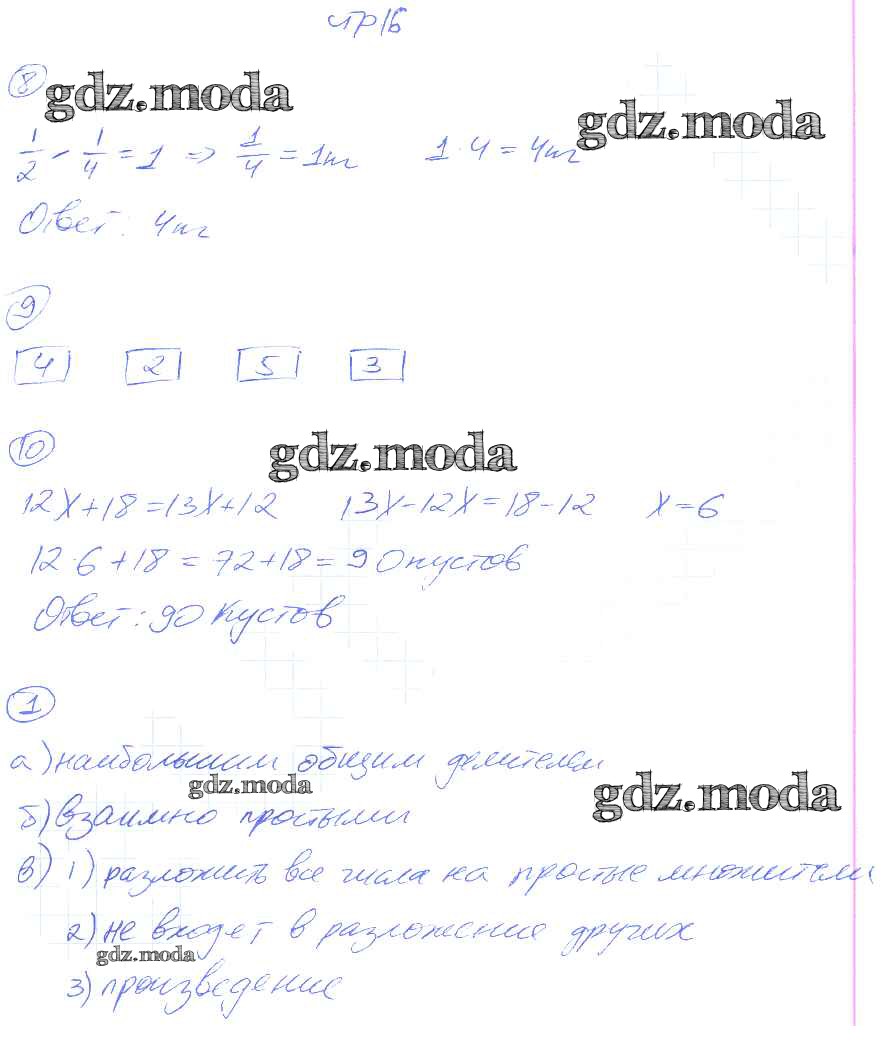 стр 16
8
gdz.moda
gdz.moda
1/2 - 1/4 = 1 => 1/4 = 1кг 1·4 = 4кг
Ответ: 4кг
9
4 2 5 3
10
gdz.moda
12x+18=13x+12 13x-12x=18-12 x=6
12·6+18=72+18=90кустов
Ответ: 90 кустов
1
а) наибольшим общим делителем
gdz.moda
gdz.moda
б) взаимно простыми
в) 1) разложить все числа на простые множители
2) не входят в разложение других
gdz.moda
3) произведение